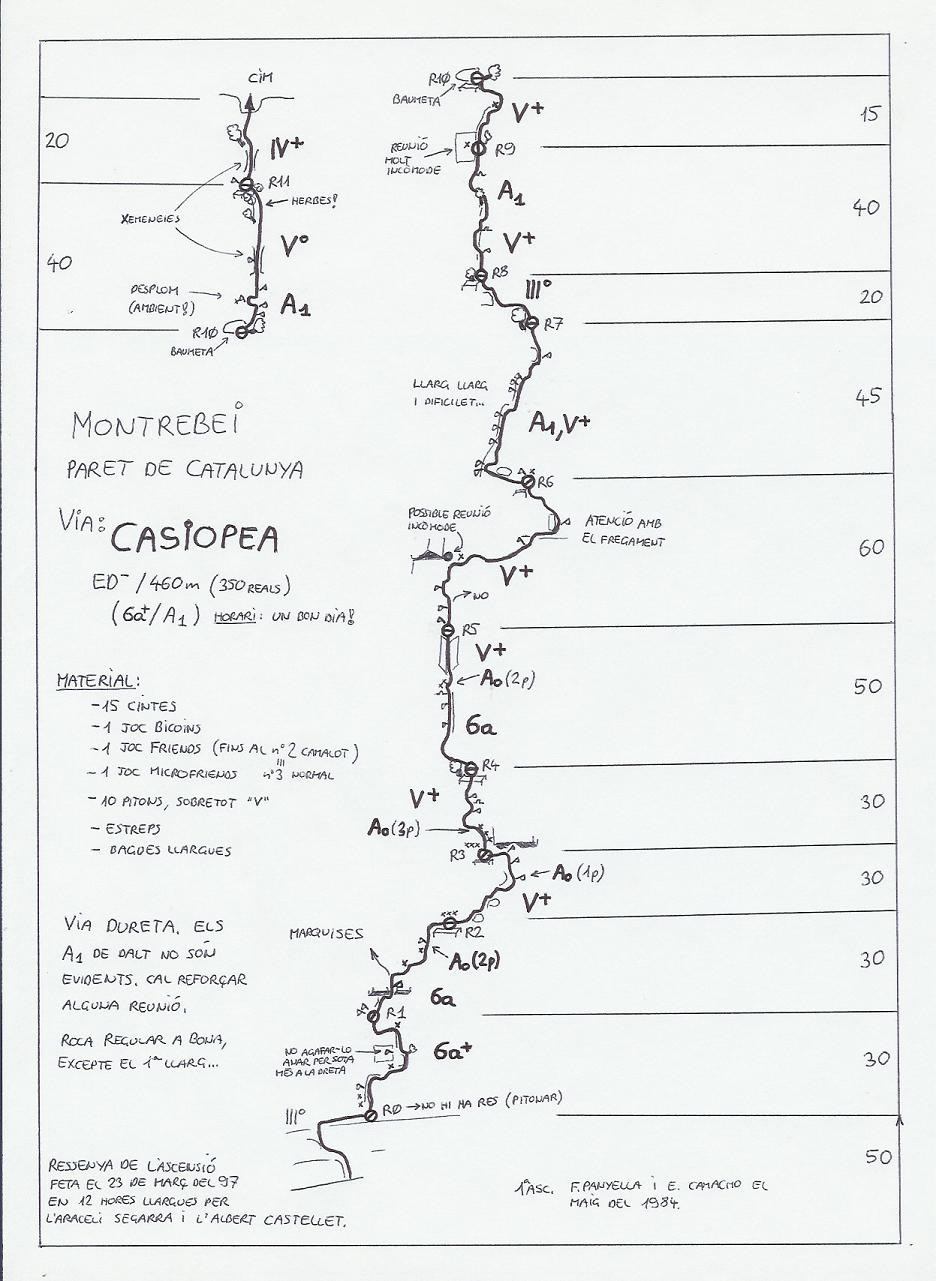 CIM
20
IV+
R11
HERBES!
XEMENEIES
V°
40
DESPLOM
(AMBIENT!)
A1
R10
BAUMETA
MONTREBEI
PARET DE CATALUNYA
VIA: CASIOPEA
ED⁻/460m (350 REALS)
(6a+/A1) HORARI: UN BON DIA!
MATERIAL:
- 15 CINTES
- 1 JOC BICOINS
- 1 JOC FRIENDS (FINS AL nº2 CAMALOT)
- 1 JOC MICROFRIENDS nº3 NORMAL
- 10 PITONS, SOBRETOT "V"
- ESTREPS
- BAGUES LLARGUES
VIA DURETA. ELS
A1 DE DALT NO SÓN
EVIDENTS. CAL REFORÇAR
ALGUNA REUNIÓ.
ROCA REGULAR A BONA,
EXCEPTE EL 1ᵉʳ LLARG...
RESSENYA DE L'ASCENSIÓ
FETA EL 23 DE MARÇ DEL 97
EN 12 HORES LLARGUES PER
L'ARACELI SEGARRA I L'ALBERT CASTELLET.
R10
BAUMETA
V+
15
REUNIÓ
MOLT
INCÒMODE
R9
A1
40
V+
R8
III°
20
R7
LLARG LLARG
I DIFICILET...
45
A1, V+
R6
POSSIBLE REUNIÓ
INCÒMODE
ATENCIÓ AMB
EL FREGAMENT
60
V+
NO
R5
V+
A0 (2p)
50
6a
R4
V+
30
A0 (3p)
R3
A0 (1p)
30
V+
R2
MARQUISES
A0 (2p)
30
6a
R1
NO AGAFAR-LO
ANAR PER SOTA
MÉS A LA DRETA
6a+
30
III°
R0 → NO HI HA RES (PITONAR)
50
1ªASC. F. PANYELLA I E. CAMACHO EL
MAIG DEL 1984.